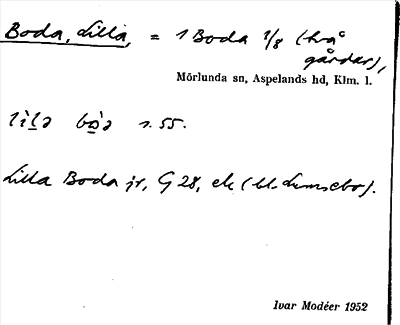 Boda, Lilla, = 1 Boda 2/8 (två
gårdar),
Mörlunda sn, Aspelands hd, Klm. l.
s. 55.
Lilla Boda jr, G 28, ek (bl.
Ivar Modéer 1952